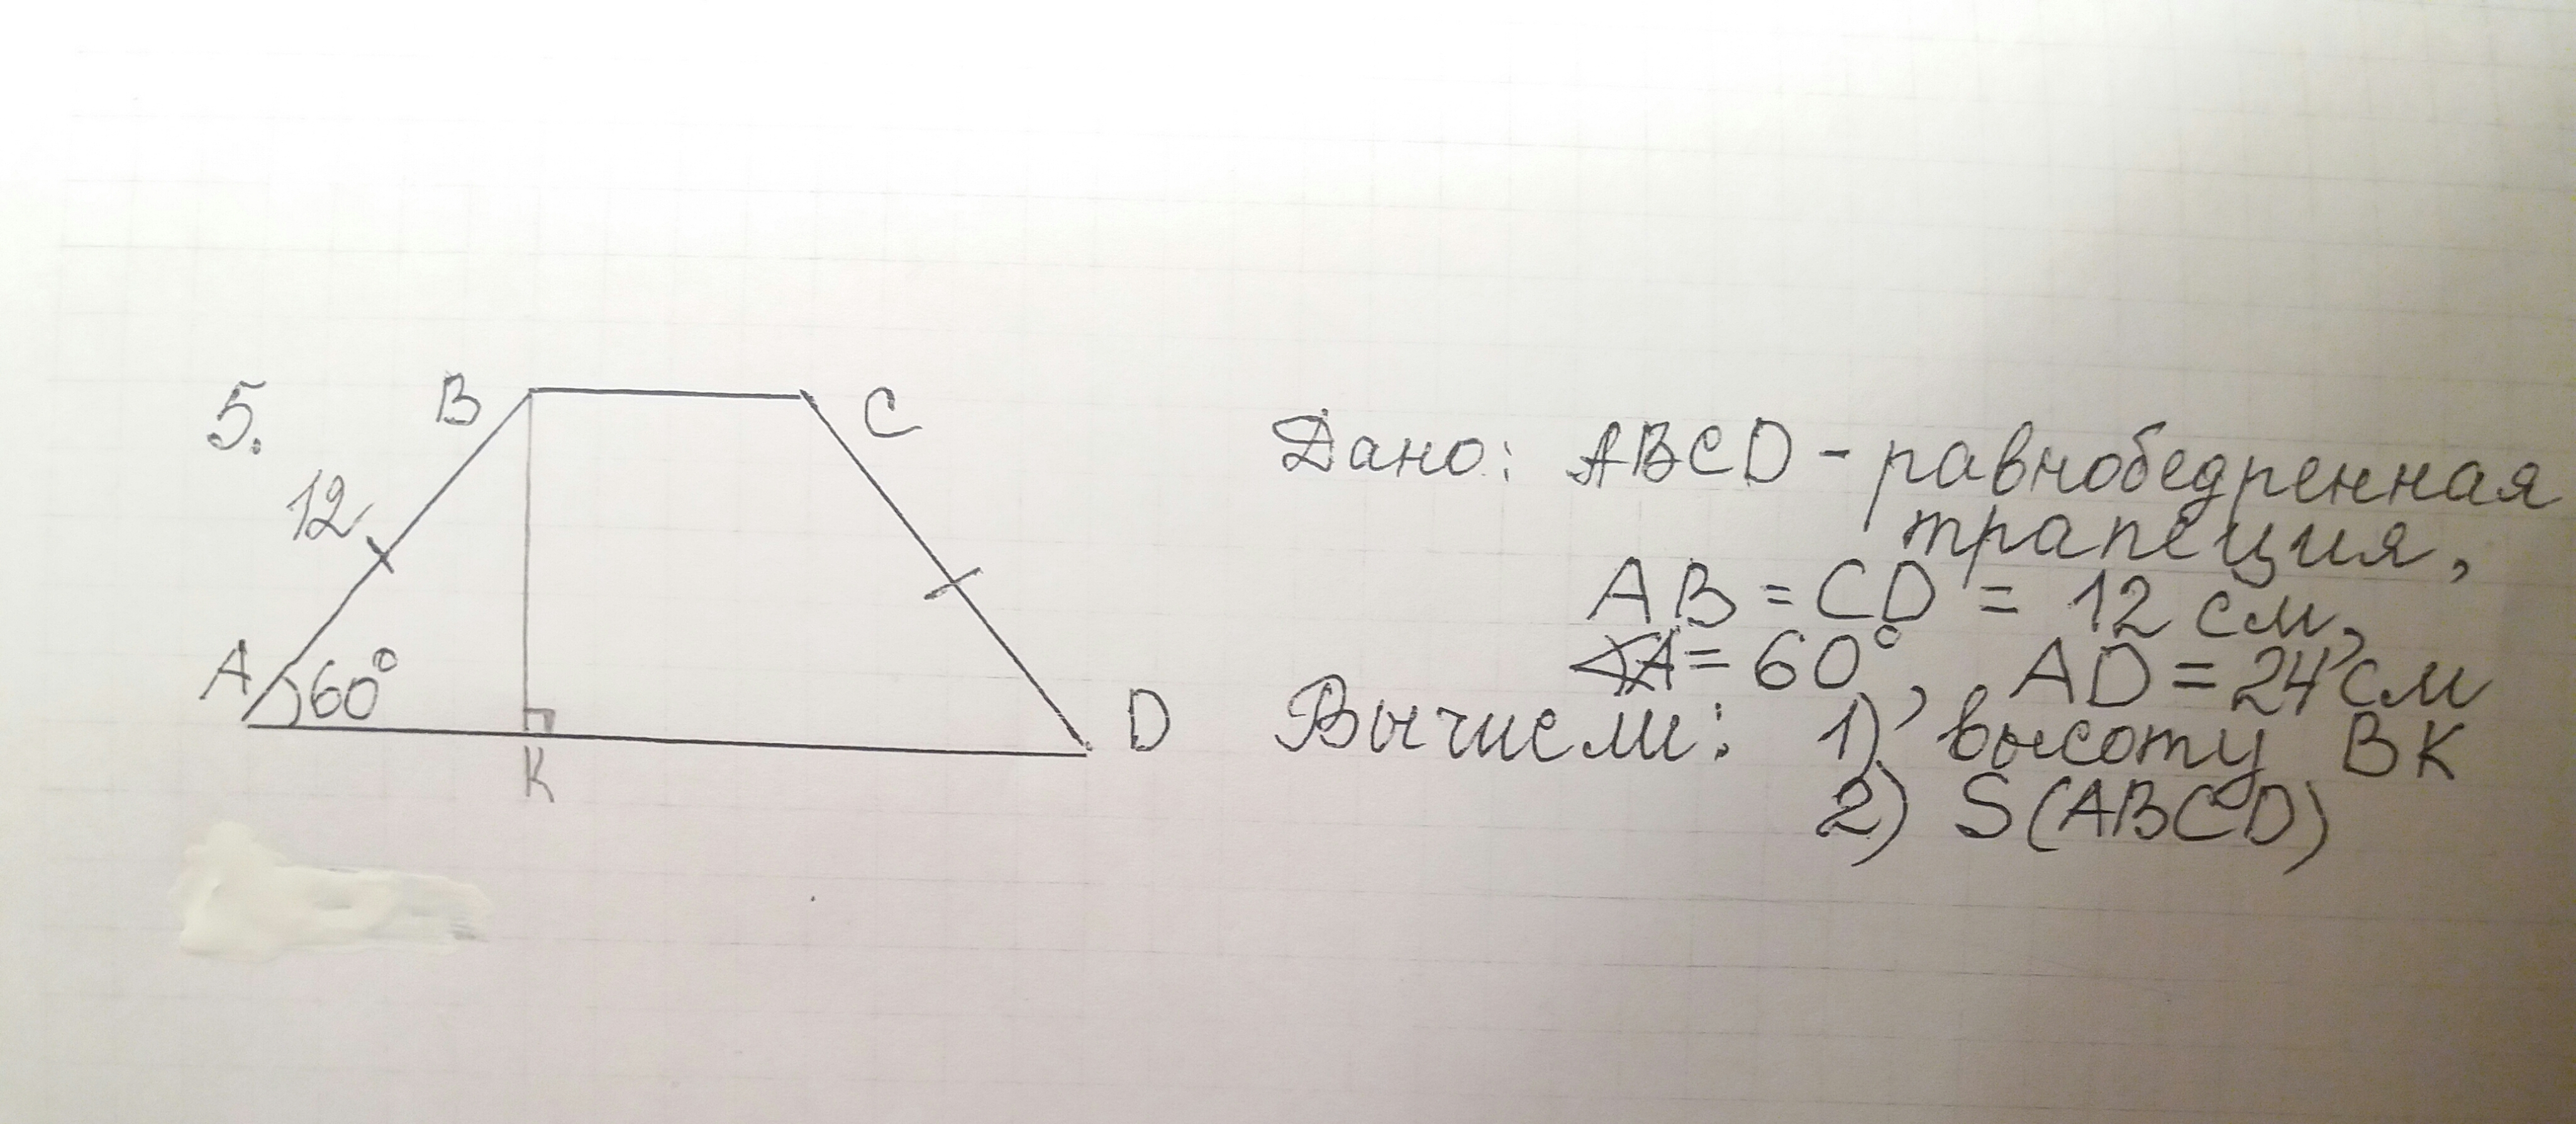 5.
B
C
12
A
60°
D
K
Дано: ABCD - равнобедренная
трапеция,
AB = CD = 12 см,
∢A = 60°, AD = 24 см
Вычисли: 1) высоту BK
2) S(ABCD)